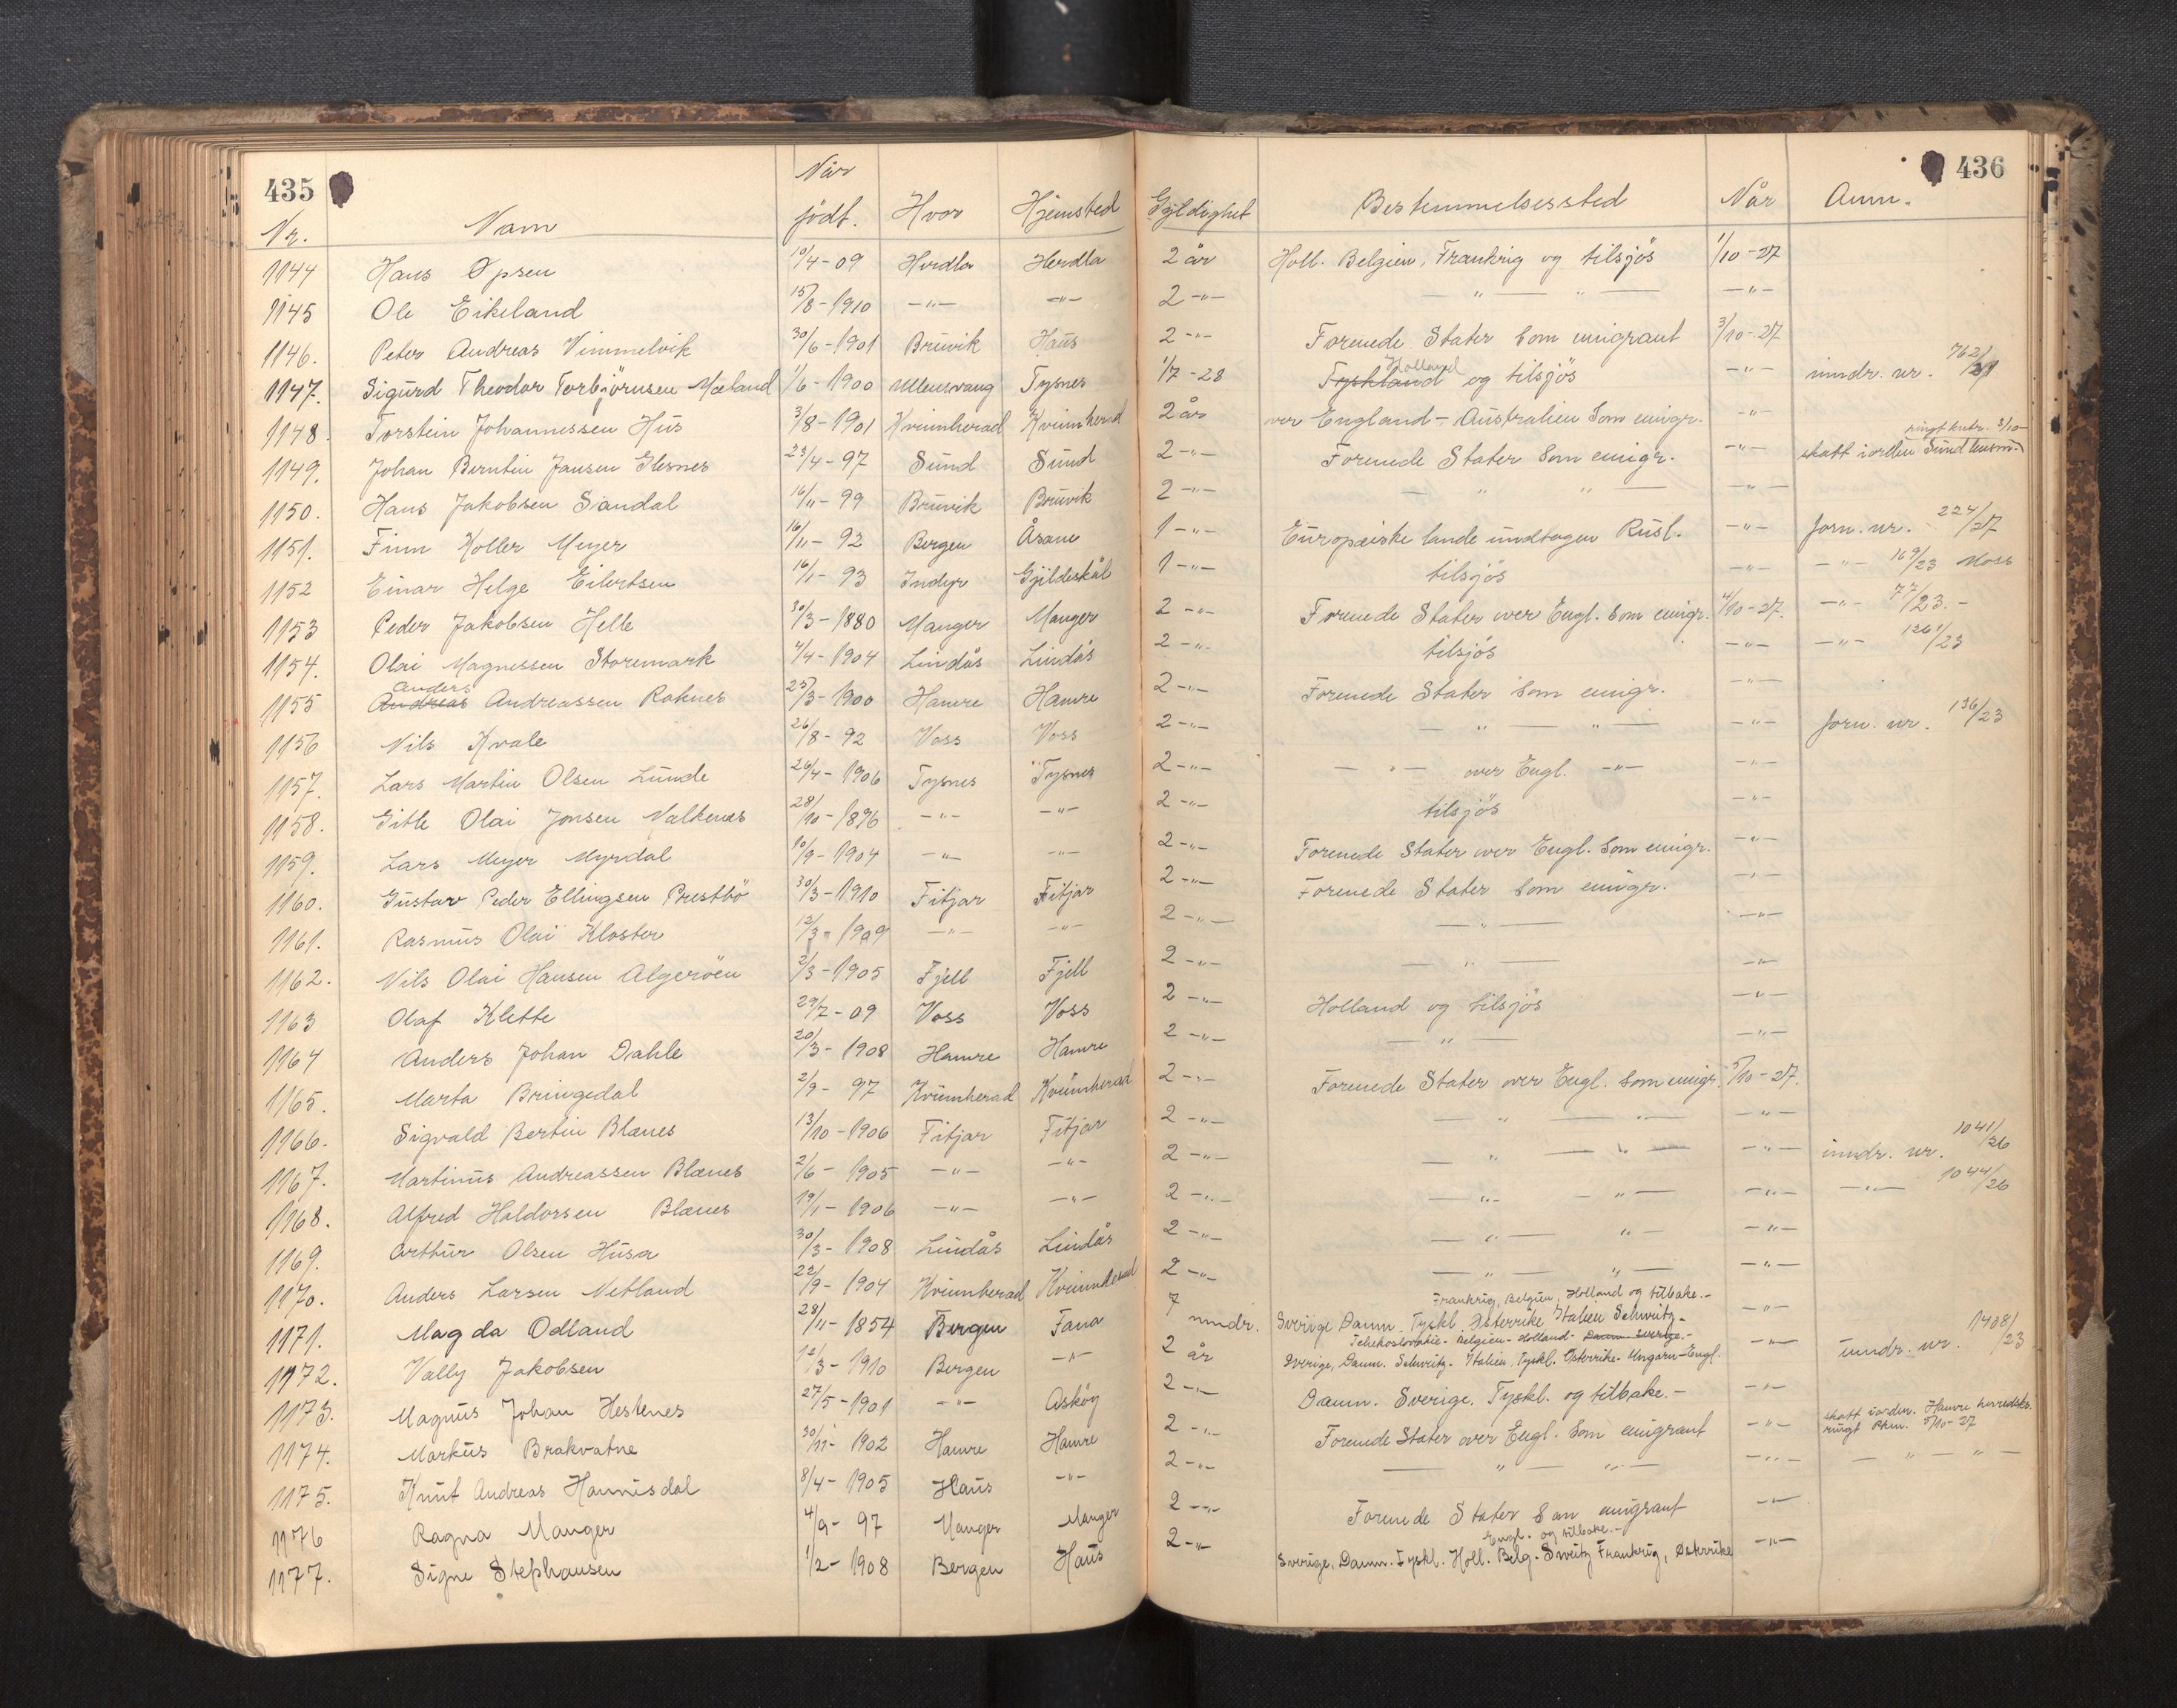 435 436
Nr. Navn Når födt. Hvor Hjemsted Gyldighet Bestemmelsessted Når Anm.
1144 Hans Øpsen 10/4-09 Herdla Herdla 2 år Holl. Belgien, Frankrig og tilsjös 1/10-27
1145 Ole Eikeland 15/8-1910 -"- -"- 2 -"- — " — " — -"-
1146. Peter Andreas Vimmelvik 30/6-1901 Bruvik Haus 2 -"- Forenede Stater som emigrant 3/10-27
1147. Sigurd Theodor Torbjörnsen Mæland 1/6-1900 Ullensvang Tysnes 1/7-28 Tyskland Holland og tilsjös -"- inndr. nr. 762/21
1148. Torstein Johannessen Hus 3/8-1901 Kvinnherad Kvinnherad 2 år over England - Australien som emigr. -"-
1149. Johan Berntin Jansen Glesnes 23/4-97 Sund Sund 2 -"- Forenede Stater som emigr. -"- skatt iorden Sund lensm. 3/10-
1150. Hans Jakobsen Sandal 16/11-99 Bruvik Bruvik 2 -"- — " " — -"-
1151. Finn Koller Meyer 16/11-92 Bergen Åsane 1 -"- Europæiske lande undtagen Rusl. -"- forn. nr. 224/27
1152 Einar Helge Eilertsen 16/1-93 Indyr Gjildeskål 1 -"- tilsjös -"- -"- 169/23 Moss
1153 Peder Jakobsen Helle 30/3-1880 Manger Manger 2 -"- Forenede Stater over Engl. som emigr. 4/10-27. -"- 77/23.-
1154. Olai Magnessen Storemark 4/4-1904 Lindås Lindås 2 -"- tilsjös -"- -"- 1261/23
1155 Andreas Anders Andreassen Roknes 25/3-1900 Hamre Hamre 2 -"- Forenede Stater som emigr. -"-
1156 Nils Kvale 26/8-92 Voss Voss 2 -"- — " — " — -"- forn. nr. 136/23
1157. Lars Martin Olsen Lunde 26/4-1906 Tysnes Tysnes 2 -"- — " — over Engl. -"- -"-
1158. Gitle Olai Jonsen Valkenes 28/10-1896 -"- -"- 2 -"- tilsjös -"-
1159. Lars Meyer Myrdal 10/9-1904 -"- -"- 2 -"- Forenede Stater over Engl. som emigr. -"-
1160. Gustav Peder Ellingsen Prestbö 30/3-1910 Fitjar Fitjar 2 -"- Forenede Stater som emigr. -"-
1161. Rasmus Olai Kloster 12/3-1909 -"- -"- 2 -"- — " — -"-
1162. Nils Olai Hansen Algeröen 2/3-1905 Fjell Fjell 2 -"- — " — -"-
1163 Olaf Klette 29/7-09 Voss Voss 2 -"- Holland og tilsjös -"-
1164 Anders Johan Dahle 20/3-1908 Hamre Hamre 2 -"- — " — -"-
1165. Marta Bringedal 2/9-97 Kvinnherad Kvinnherad 2 -"- Forenede Stater over Engl. som emigr. 5/10-27.
1166. Sigvald Bertin Blænes 13/10-1906 Fitjar Fitjar 2 -"- — " — " — -"-
1167. Martinus Andreassen Blænes 2/6-1905 -"- -"- 2 -"- — " — " — -"- inndr. nr. 1041/26
1168. Alfred Haldorsen Blænes 19/1-1906 -"- -"- 2 -"- — " — " — -"- -"- 1044/26
1169. Arthur Olsen Husa 30/3-1908 Lindås Lindås 2 -"- — " — " — -"-
1170. Anders Larsen Netland 22/9-1904 Kvinnherad Kvinnherad 2 -"- — " — " — -"-
Frankrig, Belgien, Holland og tilbake.-
1171. Magda Odland 28/11-1854 Bergen Fana 7 mndr. Sverige Danm. Tyskl. Østerrike Italien Schweitz- -"-
Tchekoslovakie- Belgien- Holland- Danm- Sverige.-
1172. Vally Jakobsen 12/3-1910 Bergen -"- 2 år Sverige, Danm. Schweitz- Italien, Tyskl. Østerrike- Ungarn- Engl. -"- inndr. nr. 1408/23
1173. Magnus Johan Hestenes 27/5-1901 -"- Asköy 2 -"- Danm. Sverige, Tyskl. og tilbake.- -"-
1174. Markus Brakvatne 30/11-1902 Hamre Hamre 2 -"- Forenede Stater over Engl. som emigrant -"- skatt iorden. Hamre herredsk. ringt 5/10-27
1175. Knut Andreas Hannisdal 8/4-1905 Haus -"- 2 -"- — " — " — -"- — " — " —
1176 Ragna Manger 4/9-97 Manger Manger 2 -"- Forenede Stater som emigrant -"-
Engl. og tilbake.-
1177. Signe Stephansen 1/2-1908 Bergen Haus 2 -"- Sverige, Danm. Tyskl. Holl. Belg. Sveitz Frankrig, Østerrike -"-